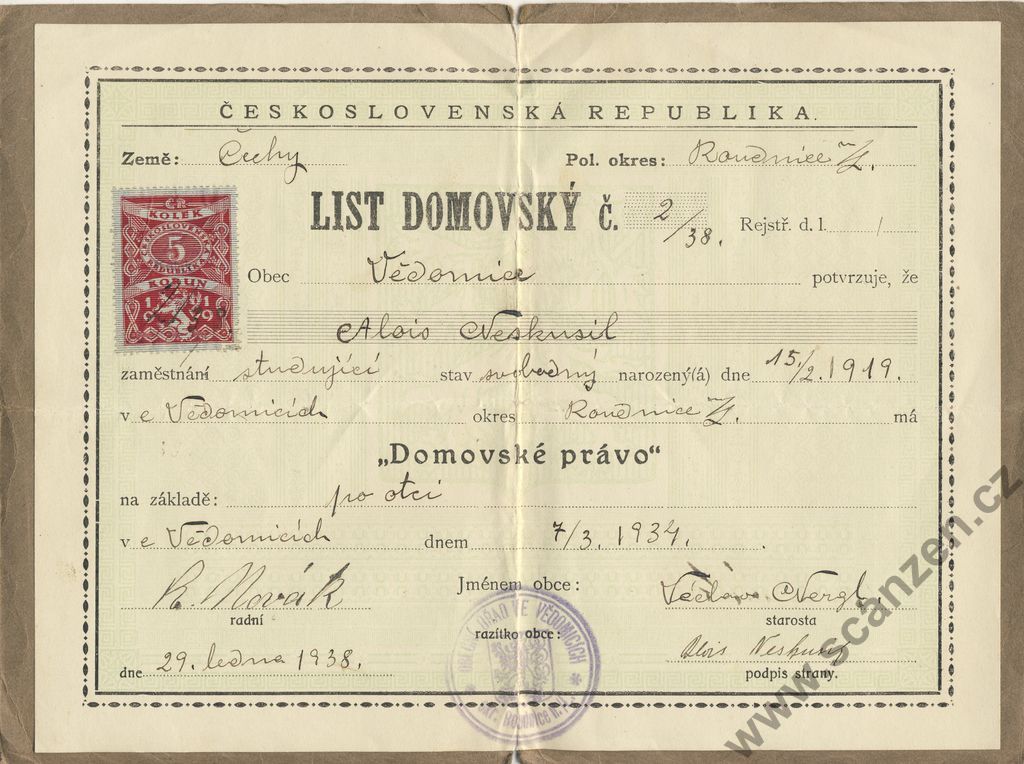 ČESKOSLOVENSKÁ REPUBLIKA.
Země: Čechy Pol. okres: Roudnice n/L.
LIST DOMOVSKÝ č. 2/38. Rejstř. d. l. /
ČR
KOLEK
ČESKOSLOVENSKÁ
5
REPUBLIKA
KORUN
1919
Obec Vědomice potvrzuje, že
Alois Neskusil
zaměstnání studující stav svobodný narozený(á) dne 15./2. 1919.
v e Vědomicích okres Roudnice n/L. má
„Domovské právo“
na základě: po otci
v e Vědomicích dnem 7/3. 1934.
R. Novák Jménem obce: Václav Nergl
radní starosta
razítko obce:
OBECNÍ ÚŘAD VE VĚDOMICÍCH
Alois Neskusil
dne 29. ledna 1938. podpis strany.
www.scanzen.cz